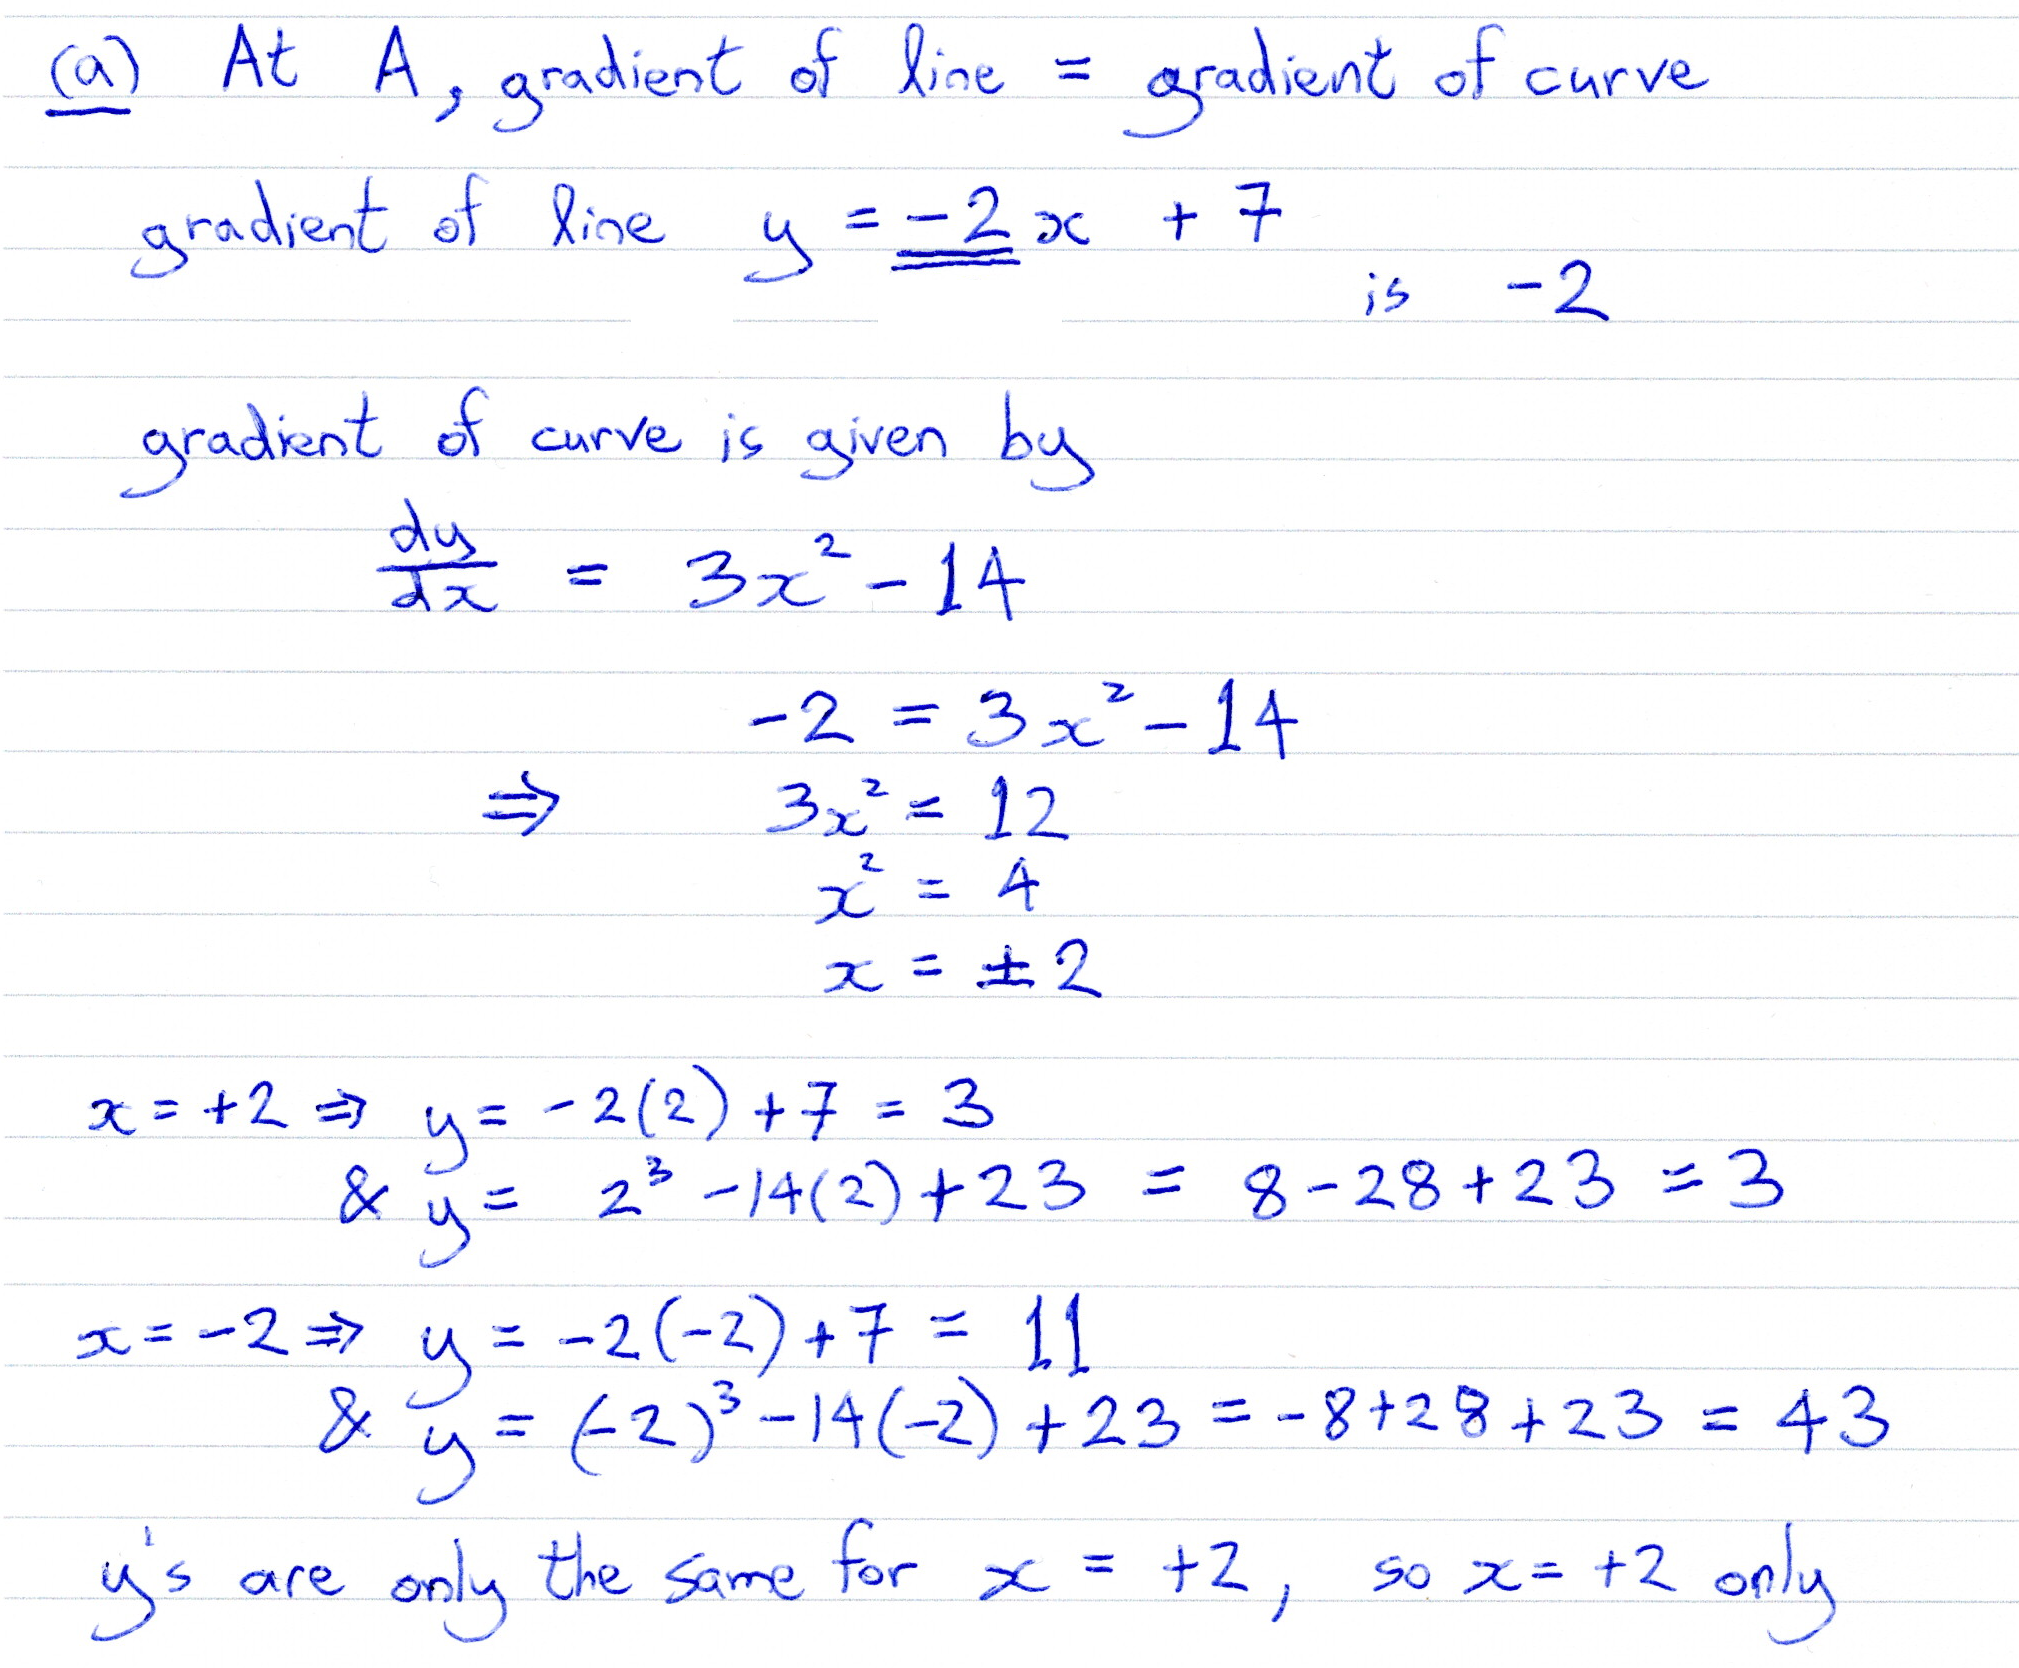 (a) At A, gradient of line = gradient of curve
gradient of line y = -2x + 7
is -2
gradient of curve is given by
dy/dx = 3x² - 14
-2 = 3x² - 14
⇒ 3x² = 12
x² = 4
x = ±2
x = +2 ⇒ y = -2(2) + 7 = 3
& y = 2³ - 14(2) + 23 = 8 - 28 + 23 = 3
x = -2 ⇒ y = -2(-2) + 7 = 11
& y = (-2)³ - 14(-2) + 23 = -8 + 28 + 23 = 43
y's are only the same for x = +2, so x = +2 only